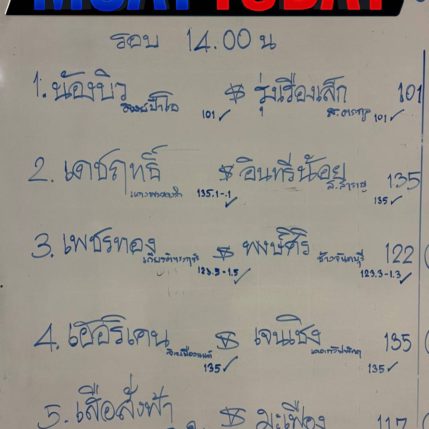 MUAY TODAY
รอบ 14.00 น
1. น้องบิว $ รุ่งเรืองเล็ก 101
101 ✓ 101 ✓
2. เดชฤทธิ์ $ อินทรีน้อย 135
135.1-.1 ✓ ส.สำราญ 135 ✓
3. เพชรทอง $ พงษ์ศิริ 122
123.5-1.5 ✓ 123.3-1.3 ✓
4. เฮอริเคน $ เจนเชิง 135
135 ✓ 135 ✓
5. เสือสั่งฟ้า $ มะเฟือง 117